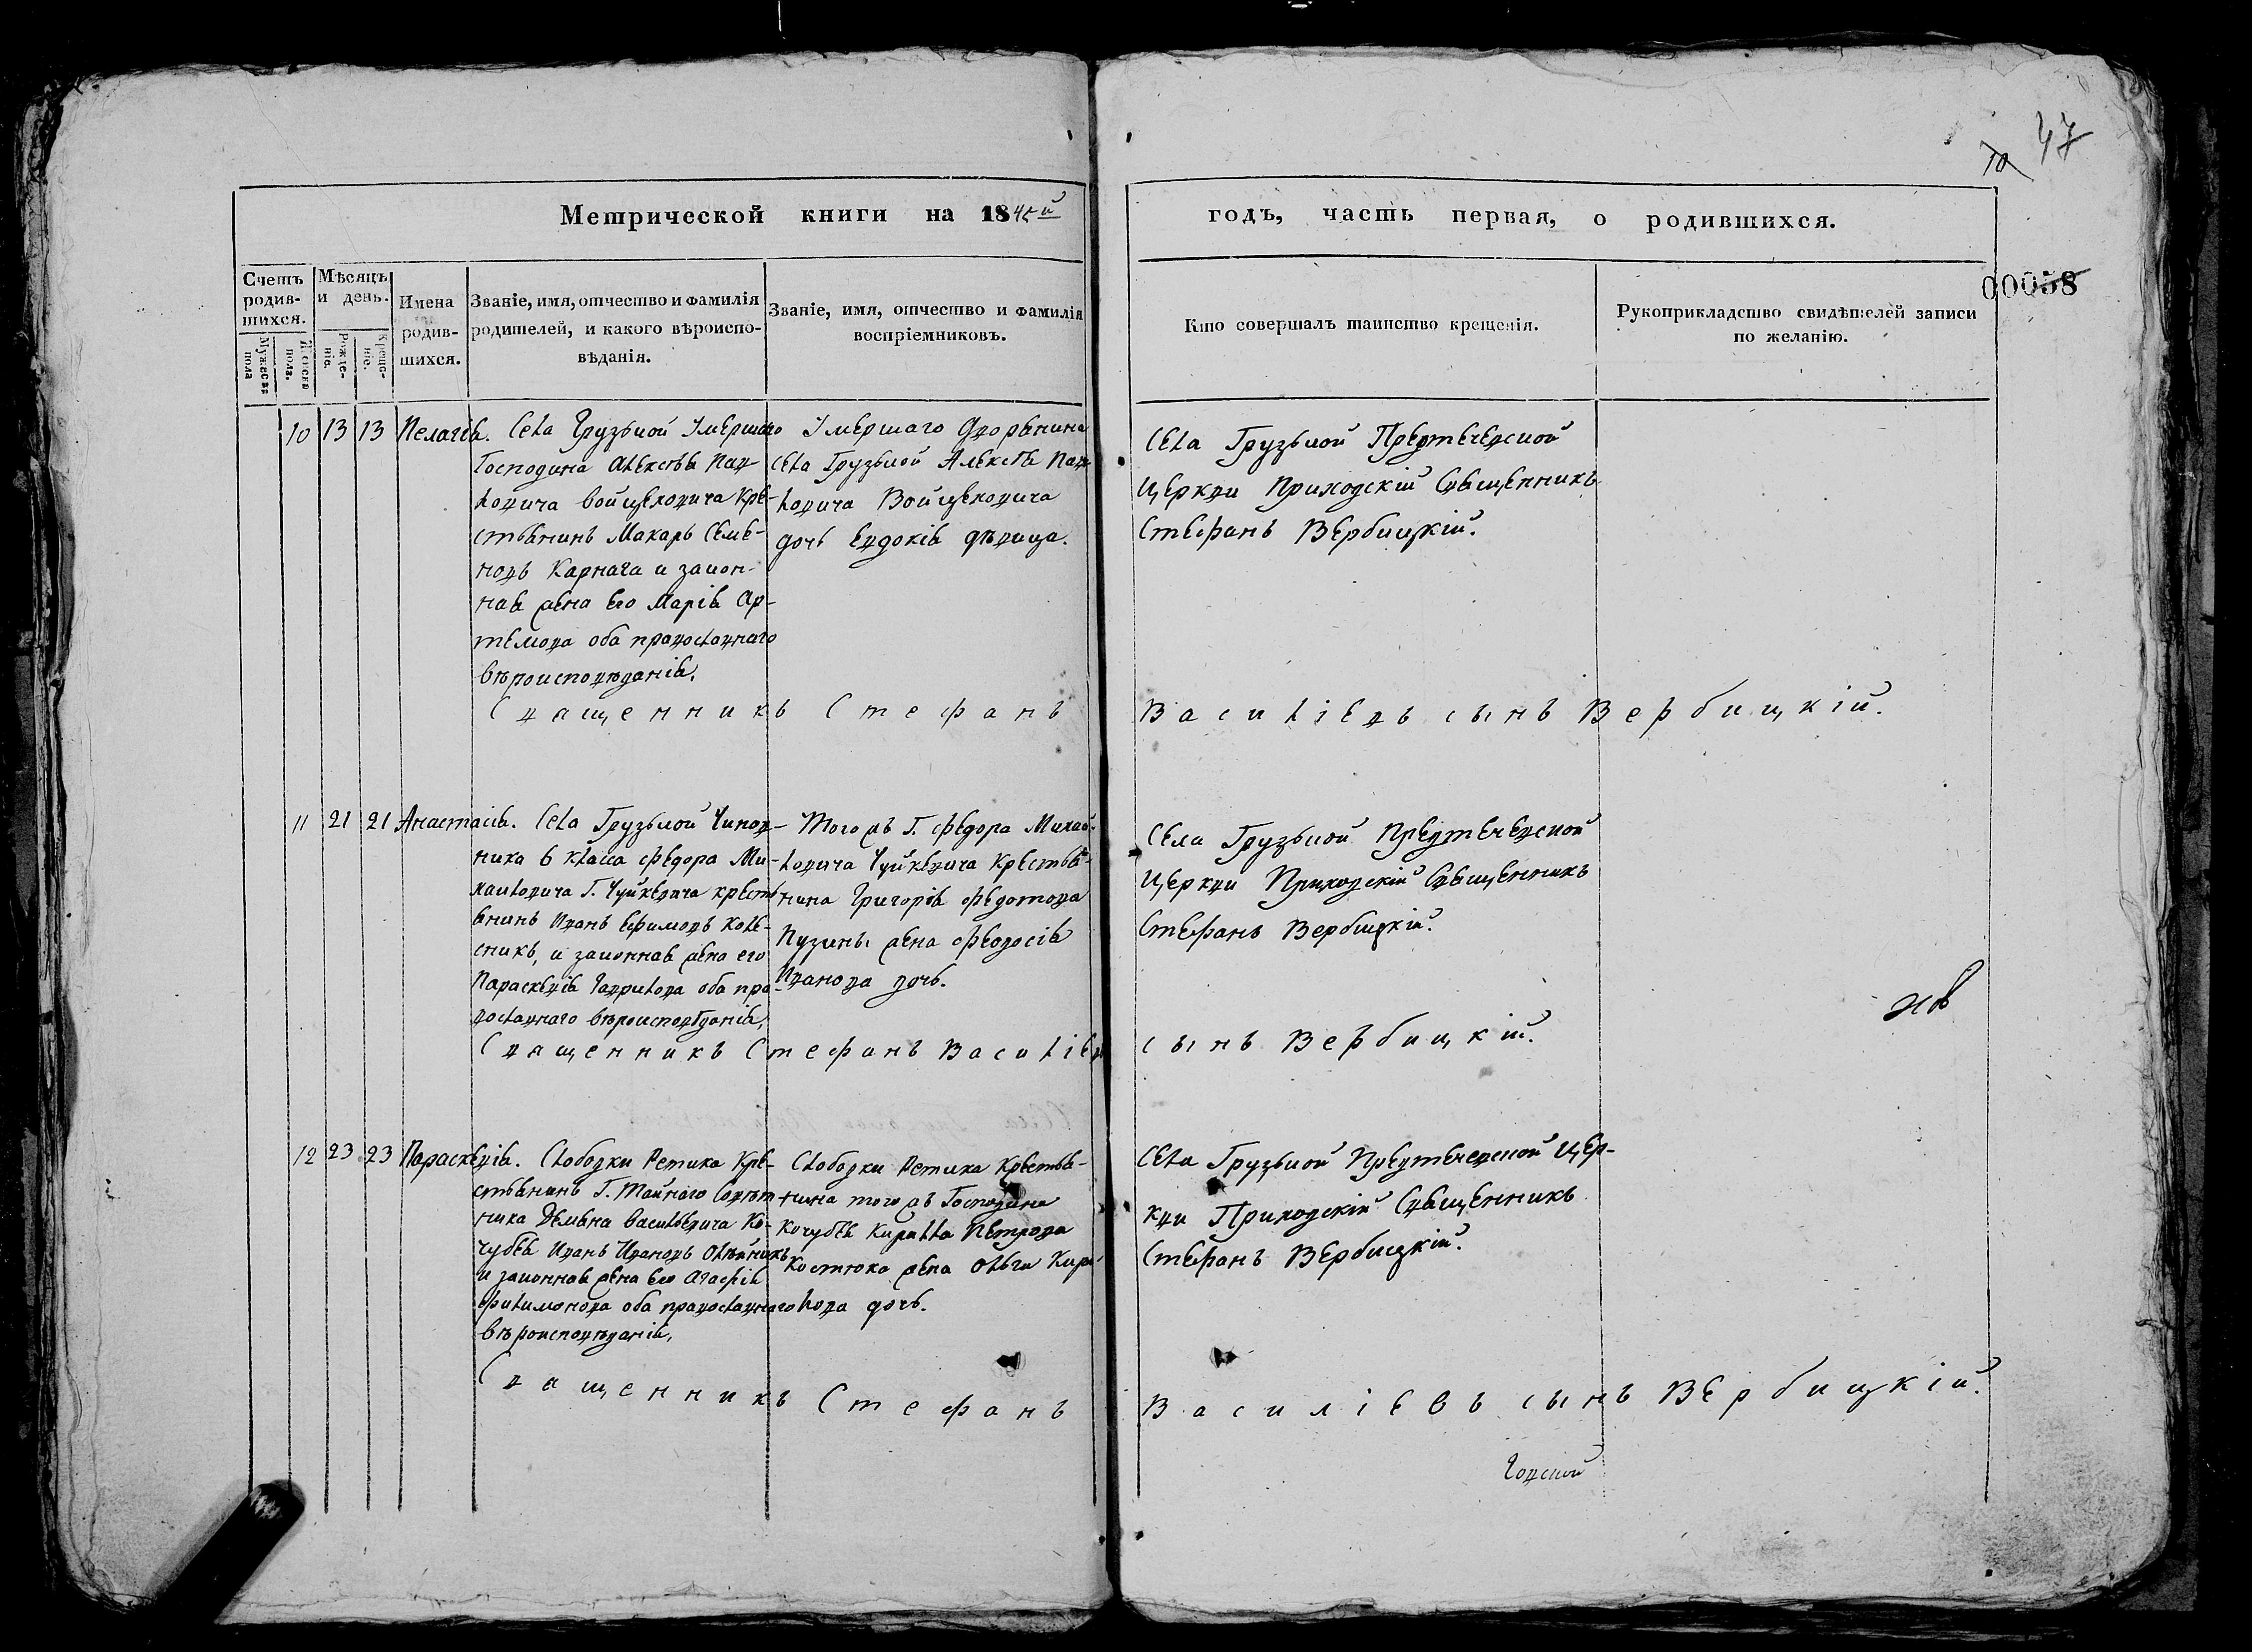 47
10
Метрической книги на 1845й
годъ, часть первая, о родившихся.
00058
Счетъ родив-шихся.
Мужеска пола
Женска пола.
Мѣсяцъ и день.
Рожде-ніе.
Креще-ніе.
Имена родив-шихся.
Званіе, имя, отчество и фамилія
родителей, и какого вѣроиспо-
вѣданія.
Званіе, имя, отчество и фамилія
воспріемниковъ.
Кто совершалъ таинство крещенія.
Рукоприкладство свидѣтелей записи
по желанію.
10 13 13 Пелагія.
Села Грузьной Умершаго
Господина Алексѣя Пав-
ловича Войцеховича Кре-
стьянинъ Макаръ Семе-
новъ Карнага и закон-
ная жена его Марія Ар-
темова оба православнаго
вѣроисповѣданія.
Умершаго Дворянина
Села Грузьной Алексѣя Пав-
ловича Войцеховича
дочь Евдокія дѣвица.
Села Грузьной Предтечевской
Церкви Приходскій Священникъ
Стефанъ Вербицкій.
Священникъ Стефанъ
Василіевъ сынъ Вербицкій.
11 21 21 Анастасія.
Села Грузьной Чинов-
ника 6 класса Федора Ми-
хайловича Г. Чуйкевича крестья-
янинъ Иванъ Ефимовъ Коле-
сникъ, и законная жена его
Параскевія Гаврилова оба пра-
вославнаго вѣроисповѣданія,
Того жъ Г. Федора Михай-
ловича Чуйкевича Крестья-
нина Григорія Федотова
Пузины жена Феодосія
Иванова дочь.
Села Грузьной Предтечевской
Церкви Приходскій Священникъ
Стефанъ Вербицкій.
Священникъ Стефанъ Василіев
сынъ Вербицкій.
12 23 23 Параскевія.
Слободки Ретика Кре-
стьянинъ Г. Тайнаго Совѣт-
ника Демьяна Васильевича Ко-
чубея Иванъ Ивановъ Олѣйникъ
и законная жена его Агафія
Филимонова оба православнаго
вѣроисповѣданія,
Слободки Ретика Крестья-
нина того жъ Господина
Кочубея Кирилла Петрова
Костюка жена Ольги Кири-
лова дочь.
Села Грузьной Предтечевской Цер-
кви Приходскій Священникъ
Стефанъ Вербицкій.
Священникъ Стефанъ
Василіевъ сынъ Вербицкій.